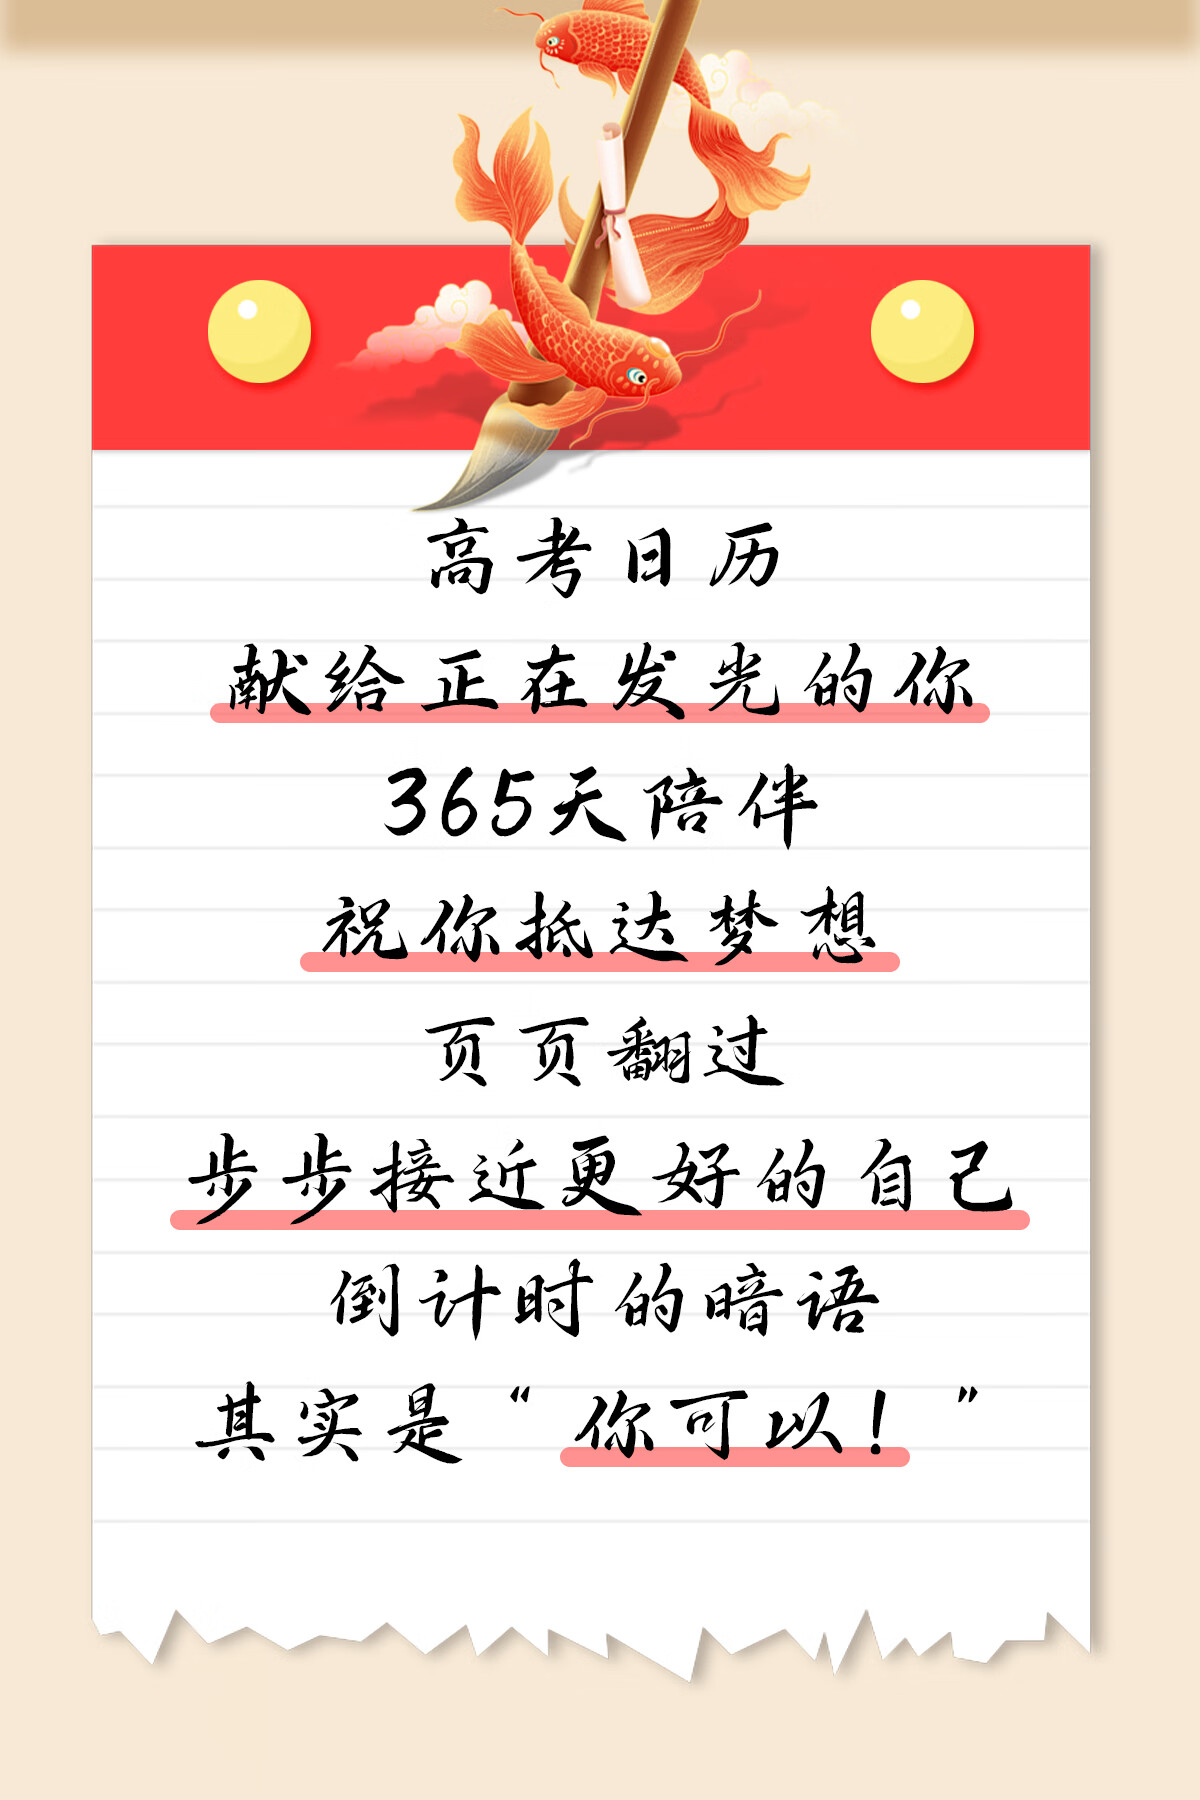 高考日历
献给正在发光的你
365天陪伴
祝你抵达梦想
页页翻过
步步接近更好的自己
倒计时的暗语
其实是“你可以！”